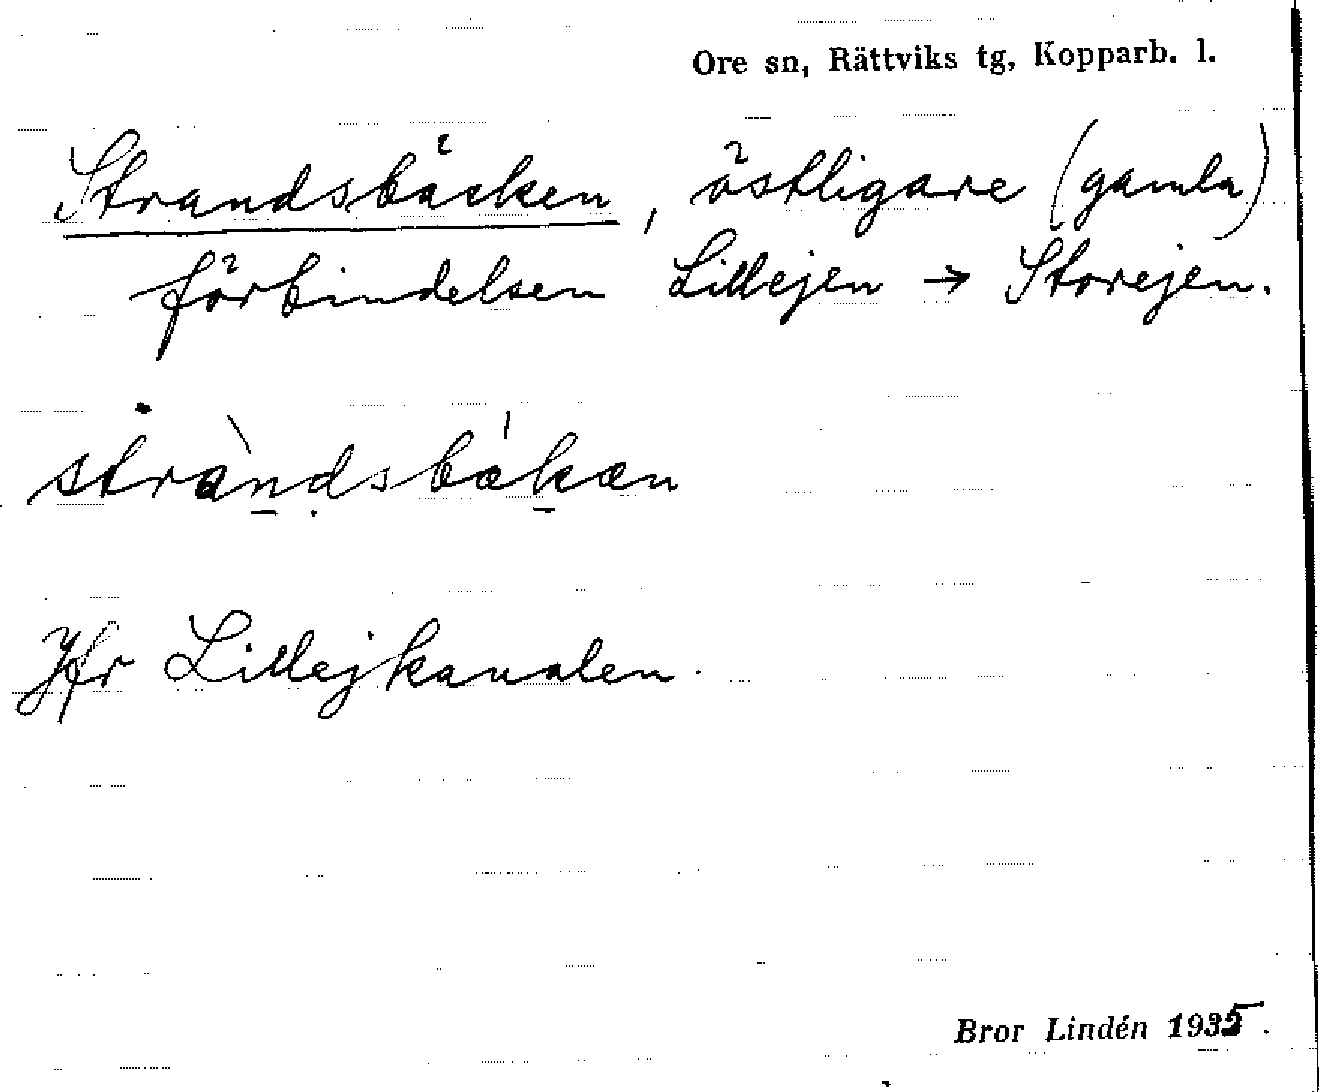 Ore sn, Rättviks tg, Kopparb. l.
Strandsbäcken, östligare (gamla)
förbindelsen Lillejen → Storejen.
stràndsbækæn
Jfr Lillejkanalen.
Bror Lindén 1935.